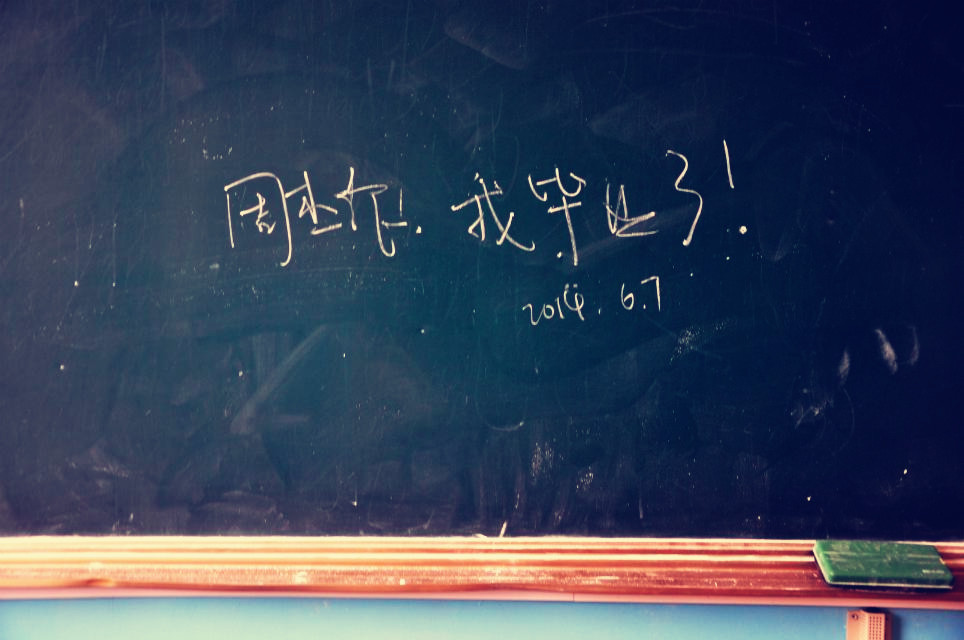 周 . 我毕业了!
2014. 6.7